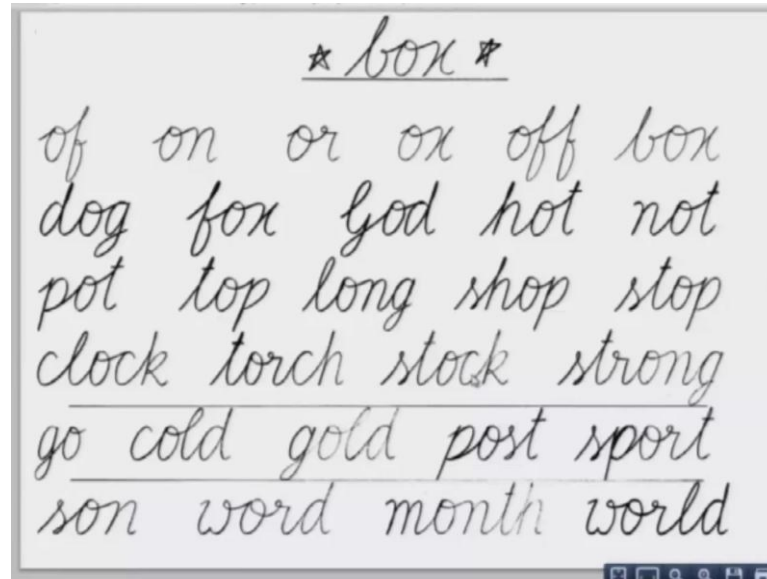 * box *
of on or ox off box
dog fox God hot not
pot top long shop stop
clock torch stock strong
go cold gold post sport
son word month world